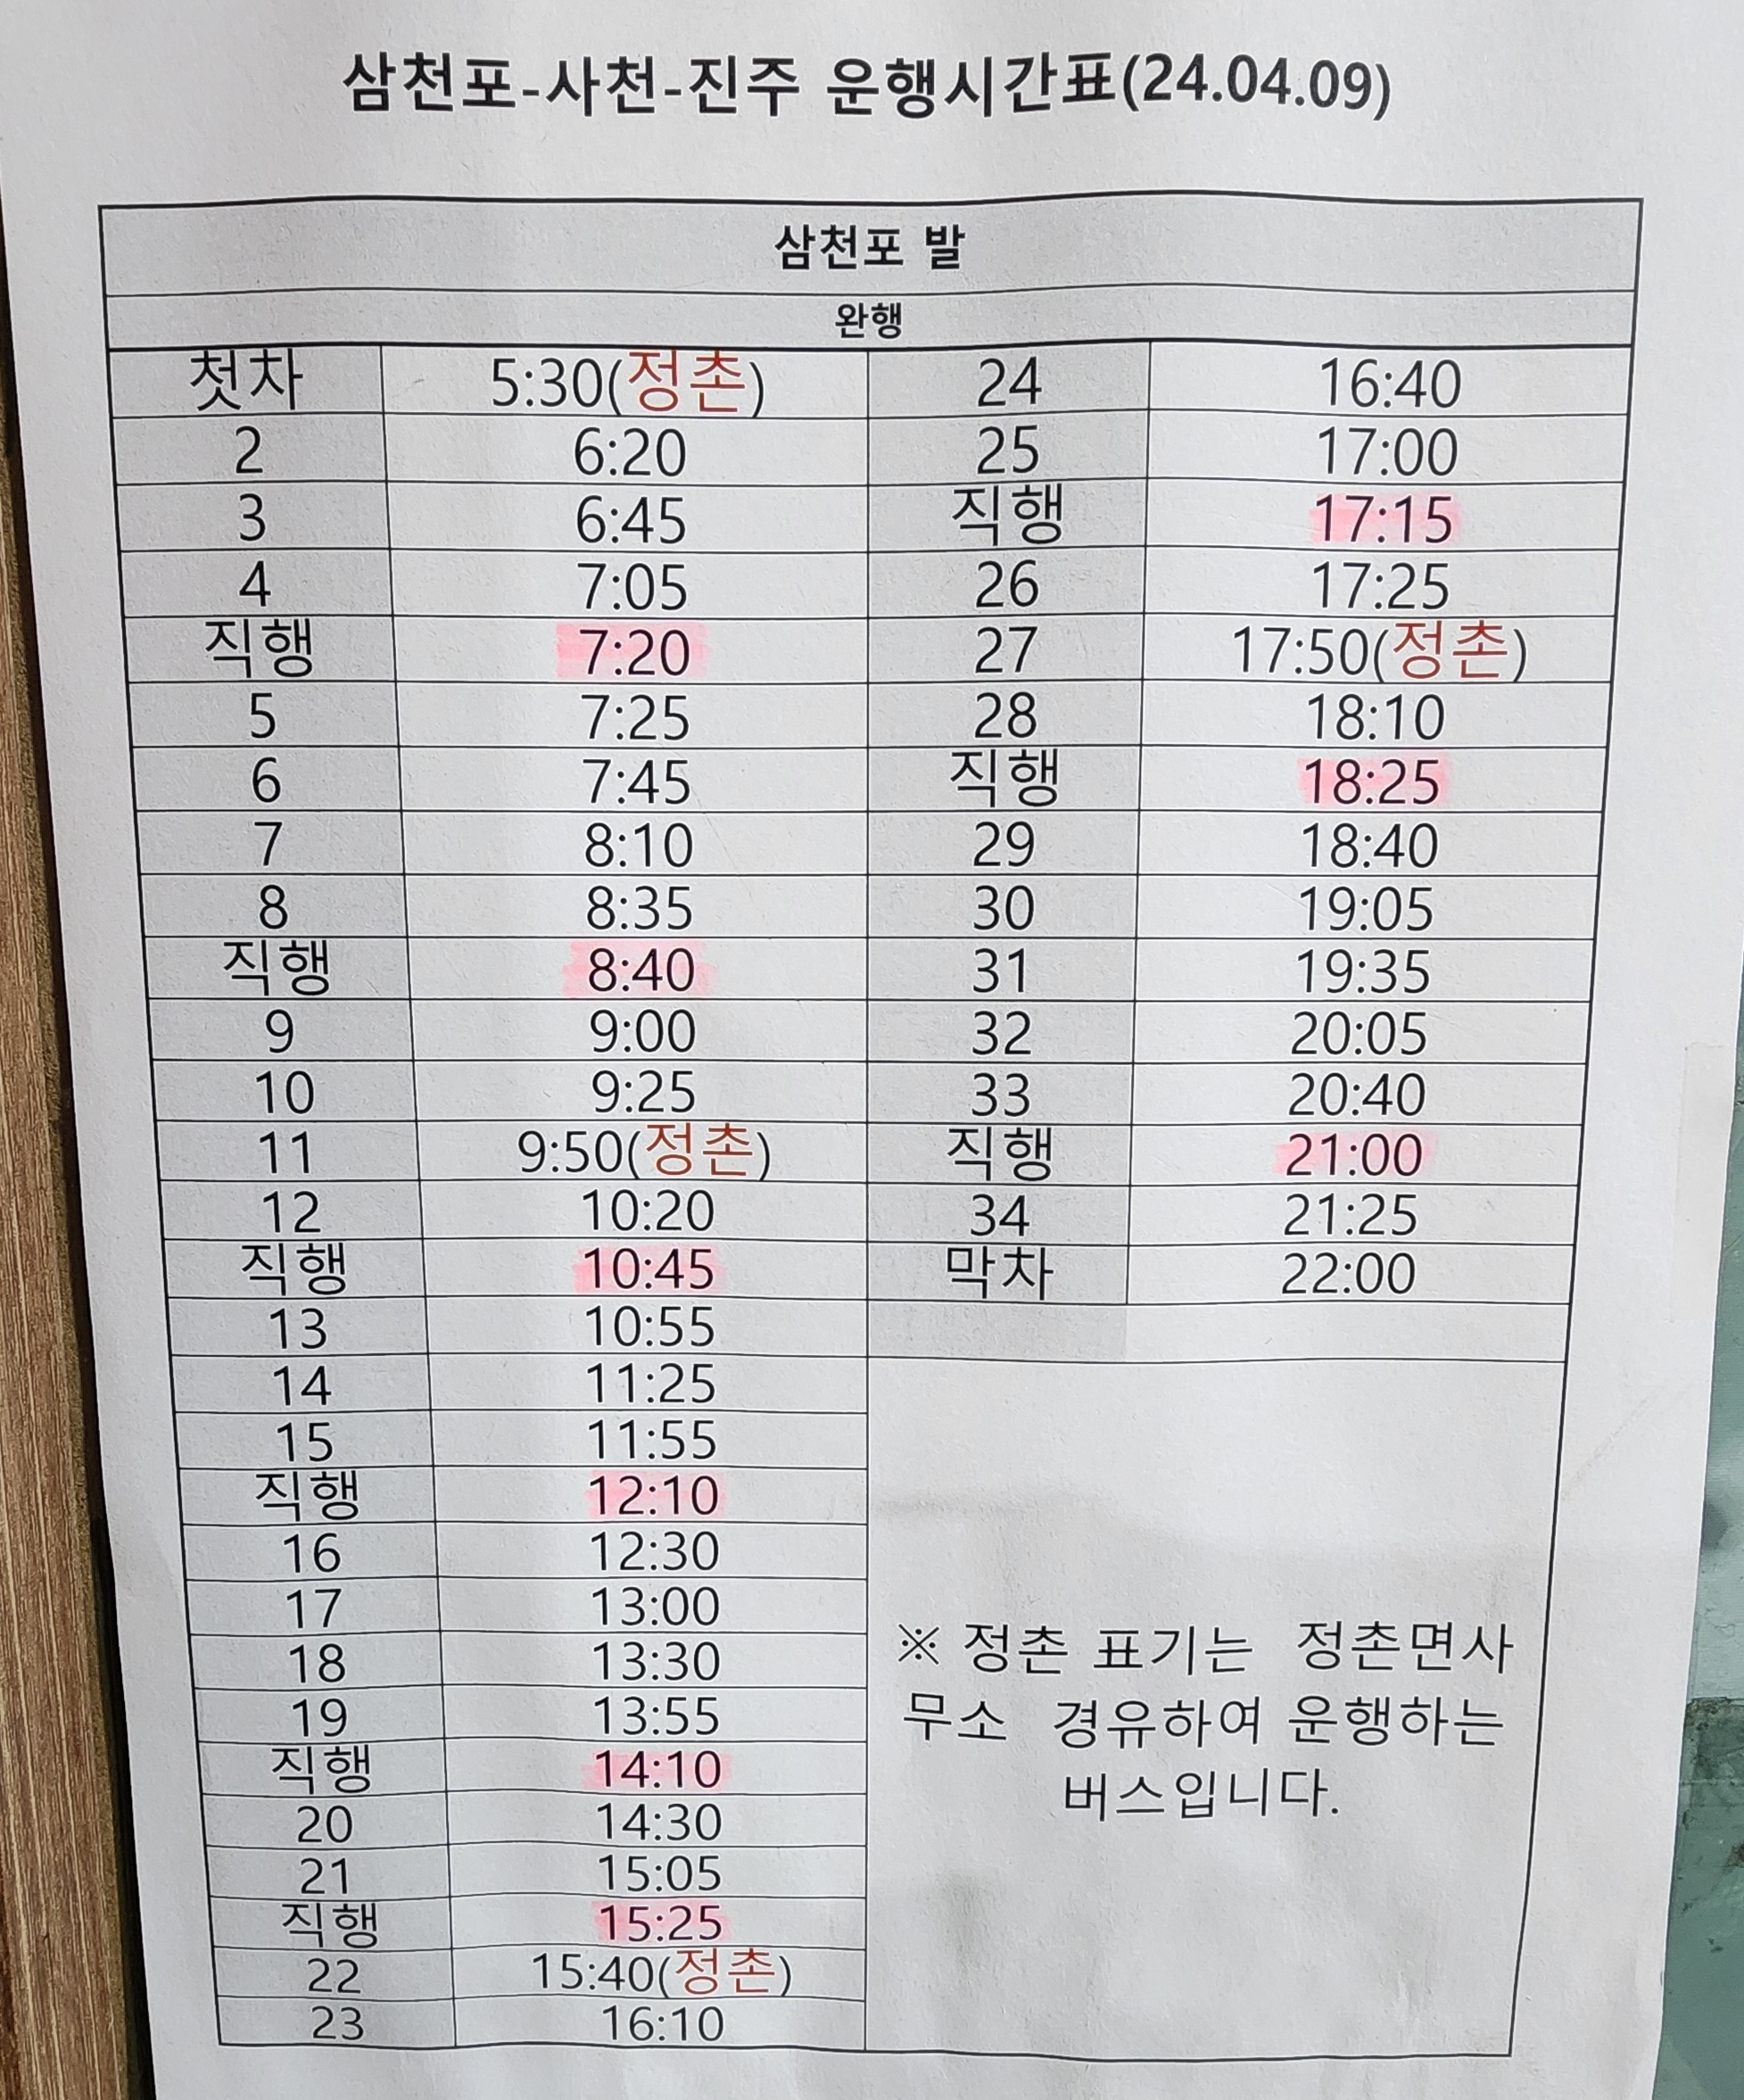 삼천포-사천-진주 운행시간표(24.04.09)
삼천포 발
완행
첫차 5:30(정촌) 24 16:40
2 6:20 25 17:00
3 6:45 직행 17:15
4 7:05 26 17:25
직행 7:20 27 17:50(정촌)
5 7:25 28 18:10
6 7:45 직행 18:25
7 8:10 29 18:40
8 8:35 30 19:05
직행 8:40 31 19:35
9 9:00 32 20:05
10 9:25 33 20:40
11 9:50(정촌) 직행 21:00
12 10:20 34 21:25
직행 10:45 막차 22:00
13 10:55
14 11:25
15 11:55
직행 12:10
16 12:30
17 13:00
18 13:30
19 13:55
직행 14:10
20 14:30
21 15:05
직행 15:25
22 15:40(정촌)
23 16:10
※ 정촌 표기는 정촌면사
무소 경유하여 운행하는
버스입니다.